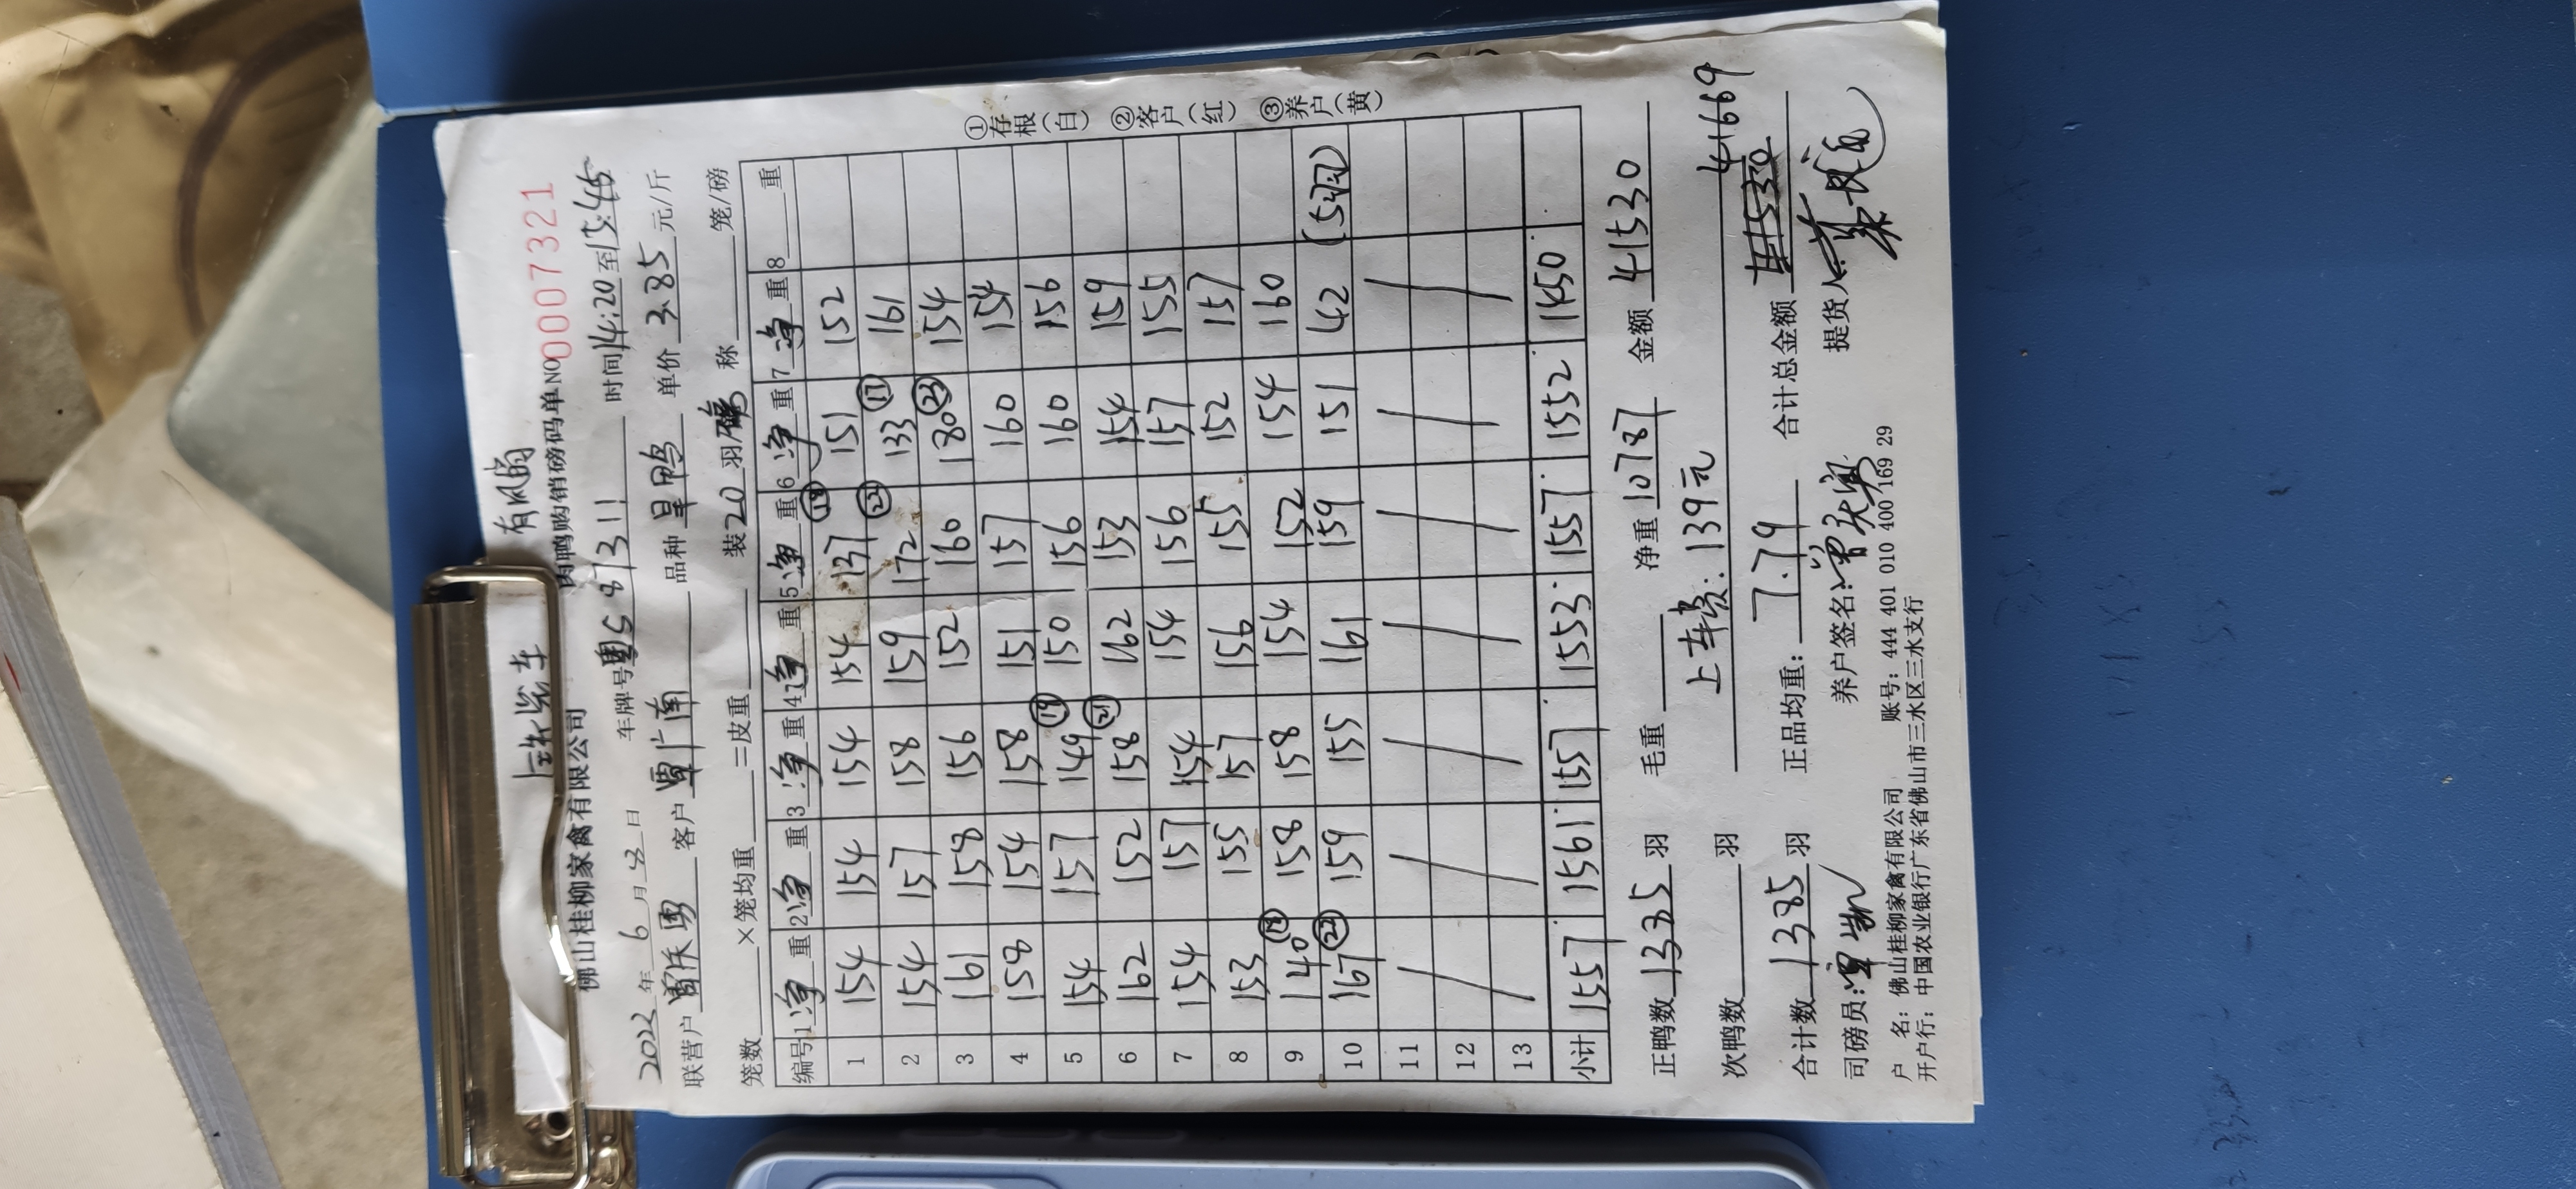 铁卷车
有
佛山桂柳家禽有限公司 肉鸭购销磅码单 NO 0007321
2022年6月 日 车牌号粤G87311 时间14:20至15:45
联营户 客户覃广南 品种旱鸭 单价3.85元/斤
笼数 ×笼均重 =皮重 装20羽/ 称 笼/磅
编号 1净重 2净重 3净重 4净重 5净重 6净重 7净重 8 重
1 154 154 154 154 137⑱ 151 152
2 154 157 158 159 172㉒ 133⑰ 161
3 161 158 156 152 160 180㉓ 154
4 158 154 158 151 157 160 154
5 154 157 149⑲ 150 156 160 156
6 162 152 158㉑ 162 153 154 159
7 154 157 154 154 156 157 155
8 153 155 157 156 155 152 157
9 140⑱ 158 158 154 152 154 160
10 167㉒ 159 155 161 159 151 42 (5羽)
11 / / / / / / /
12
13
小计 1557 1561 1557 1553 1557 1552 1450
①存根(白) ②客户(红) ③养户(黄)
正鸭数1385羽 毛重 净重10787 金额41530
次鸭数 羽 上车费:139元
合计数1385羽 正品均重:7.79 合计总金额 41530 41669
司磅员: 养户签名: 提货人
户 名:佛山桂柳家禽有限公司 账号:444 401 010 400 169 29
开户行:中国农业银行广东省佛山市三水区三水支行